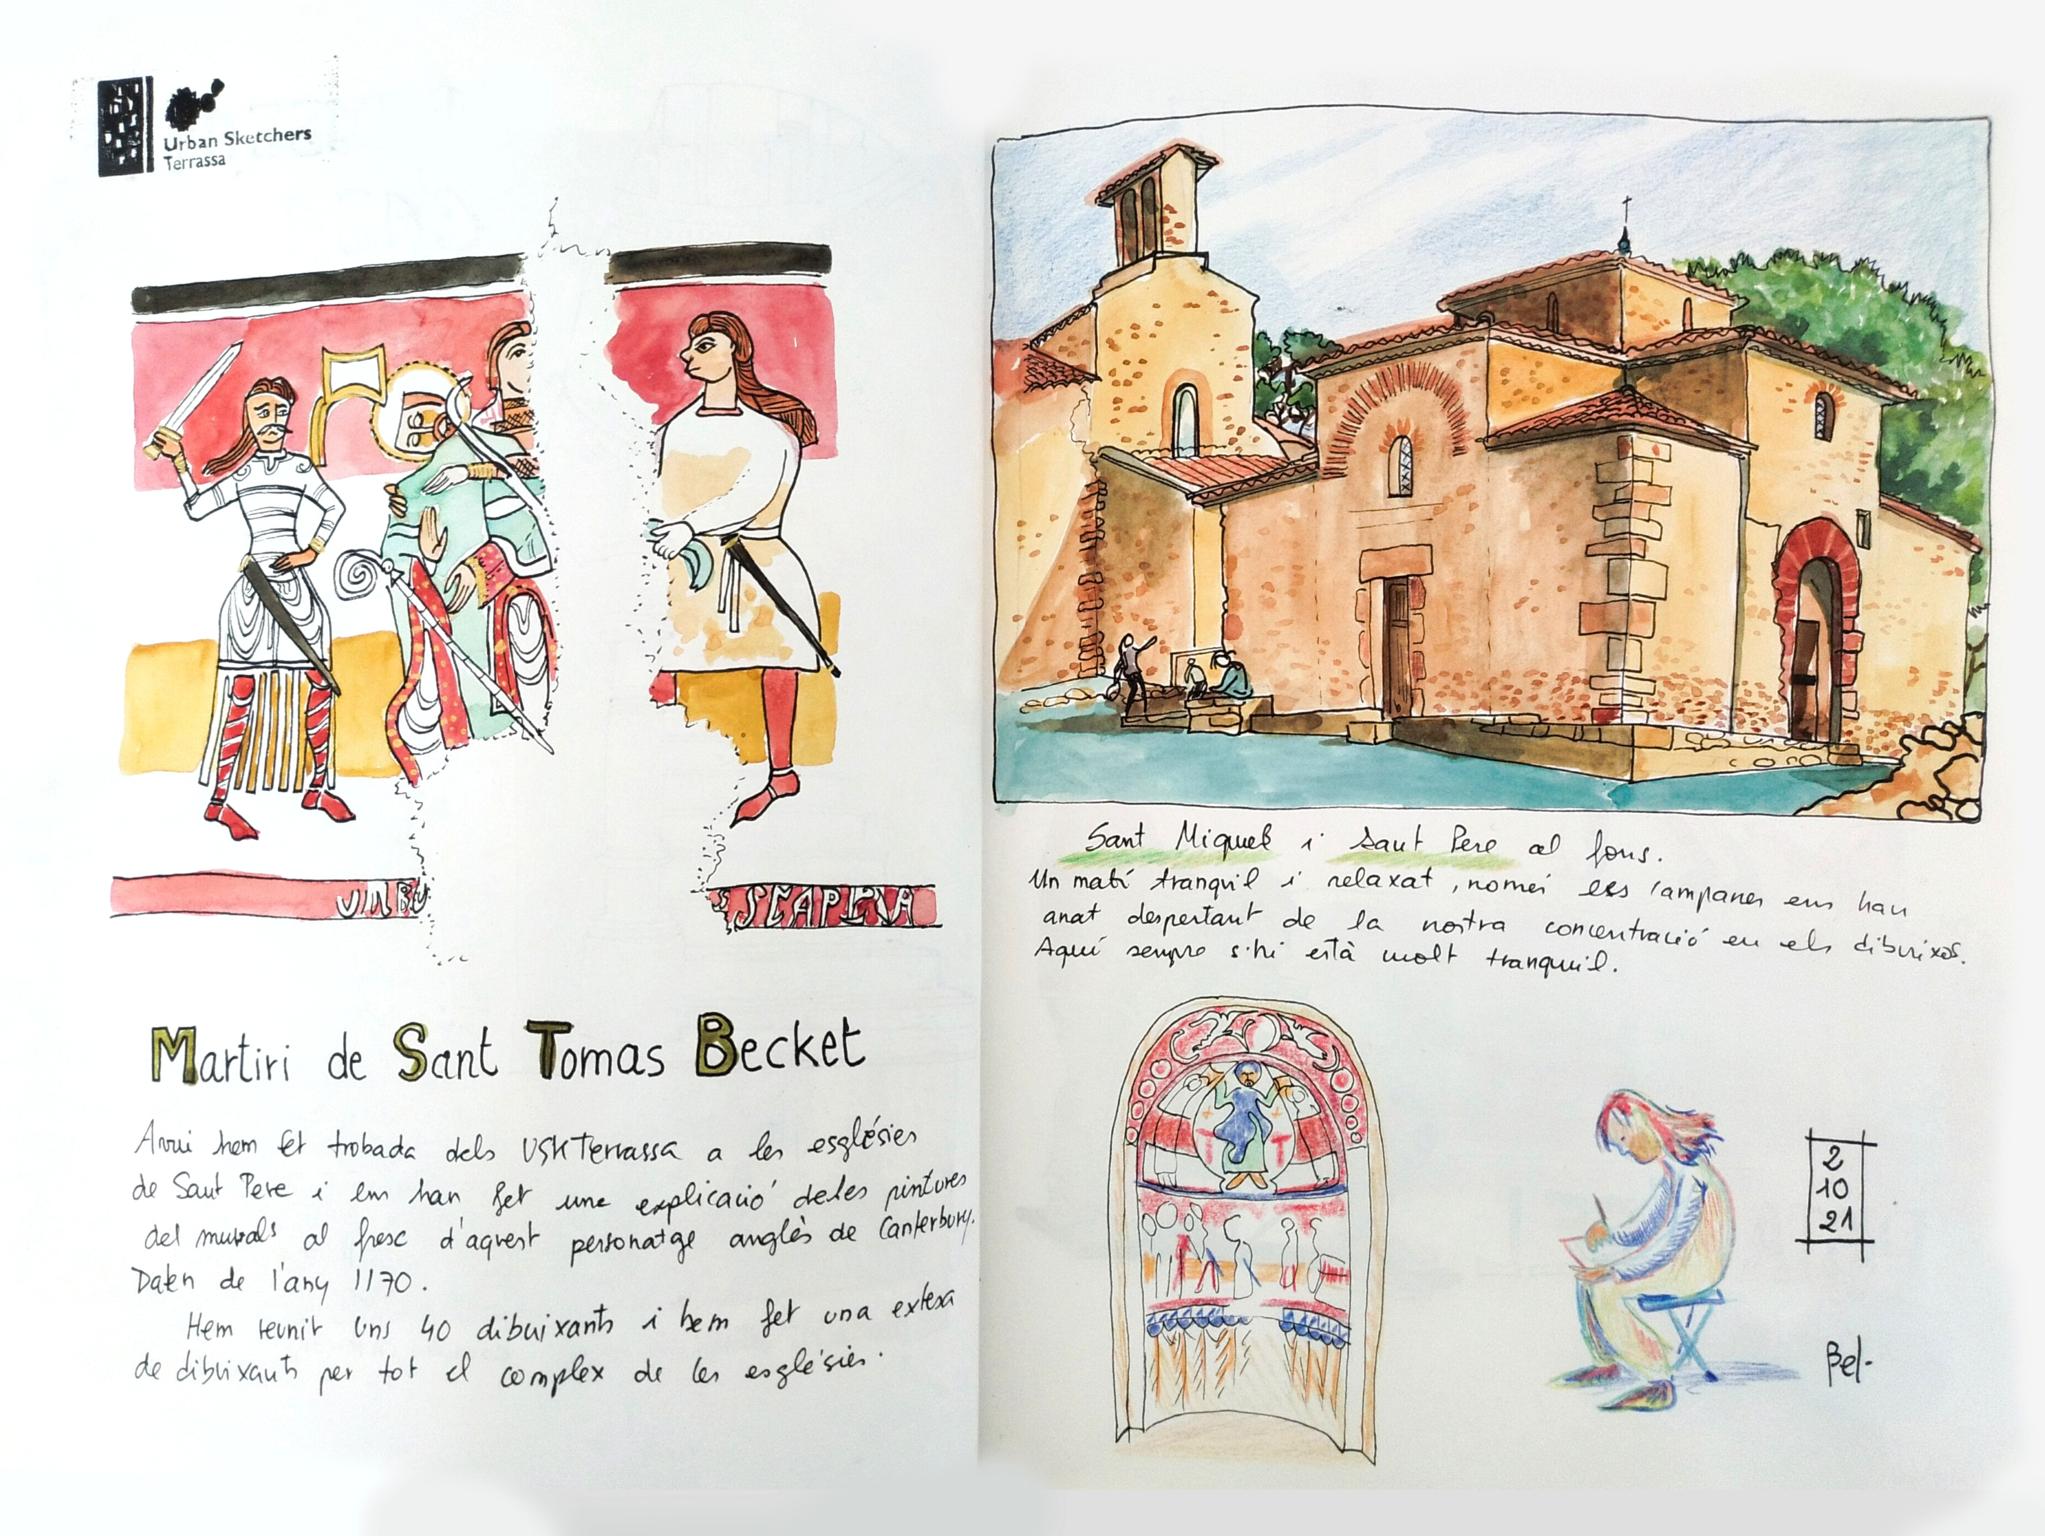 Urban Sketchers
Terrassa
UMBV
SCAPULA
Martiri de Sant Tomas Becket
Avui hem fet trobada dels USKTerrassa a les esglésies
de Sant Pere i ens han fet una explicació de les pintures
del murals al fresc d'aquest personatge anglès de Canterbury.
Daten de l'any 1170.
Hem reunit uns 40 dibuixants i hem fet una extesa
de dibuixants per tot el complex de les esglésies.
Sant Miquel i Sant Pere al fons.
Un matí tranquil i relaxat, només les campanes ens han
anat despertant de la nostra concentració en els dibuixos.
Aquí sempre s'hi està molt tranquil.
2
10
21
Bel-